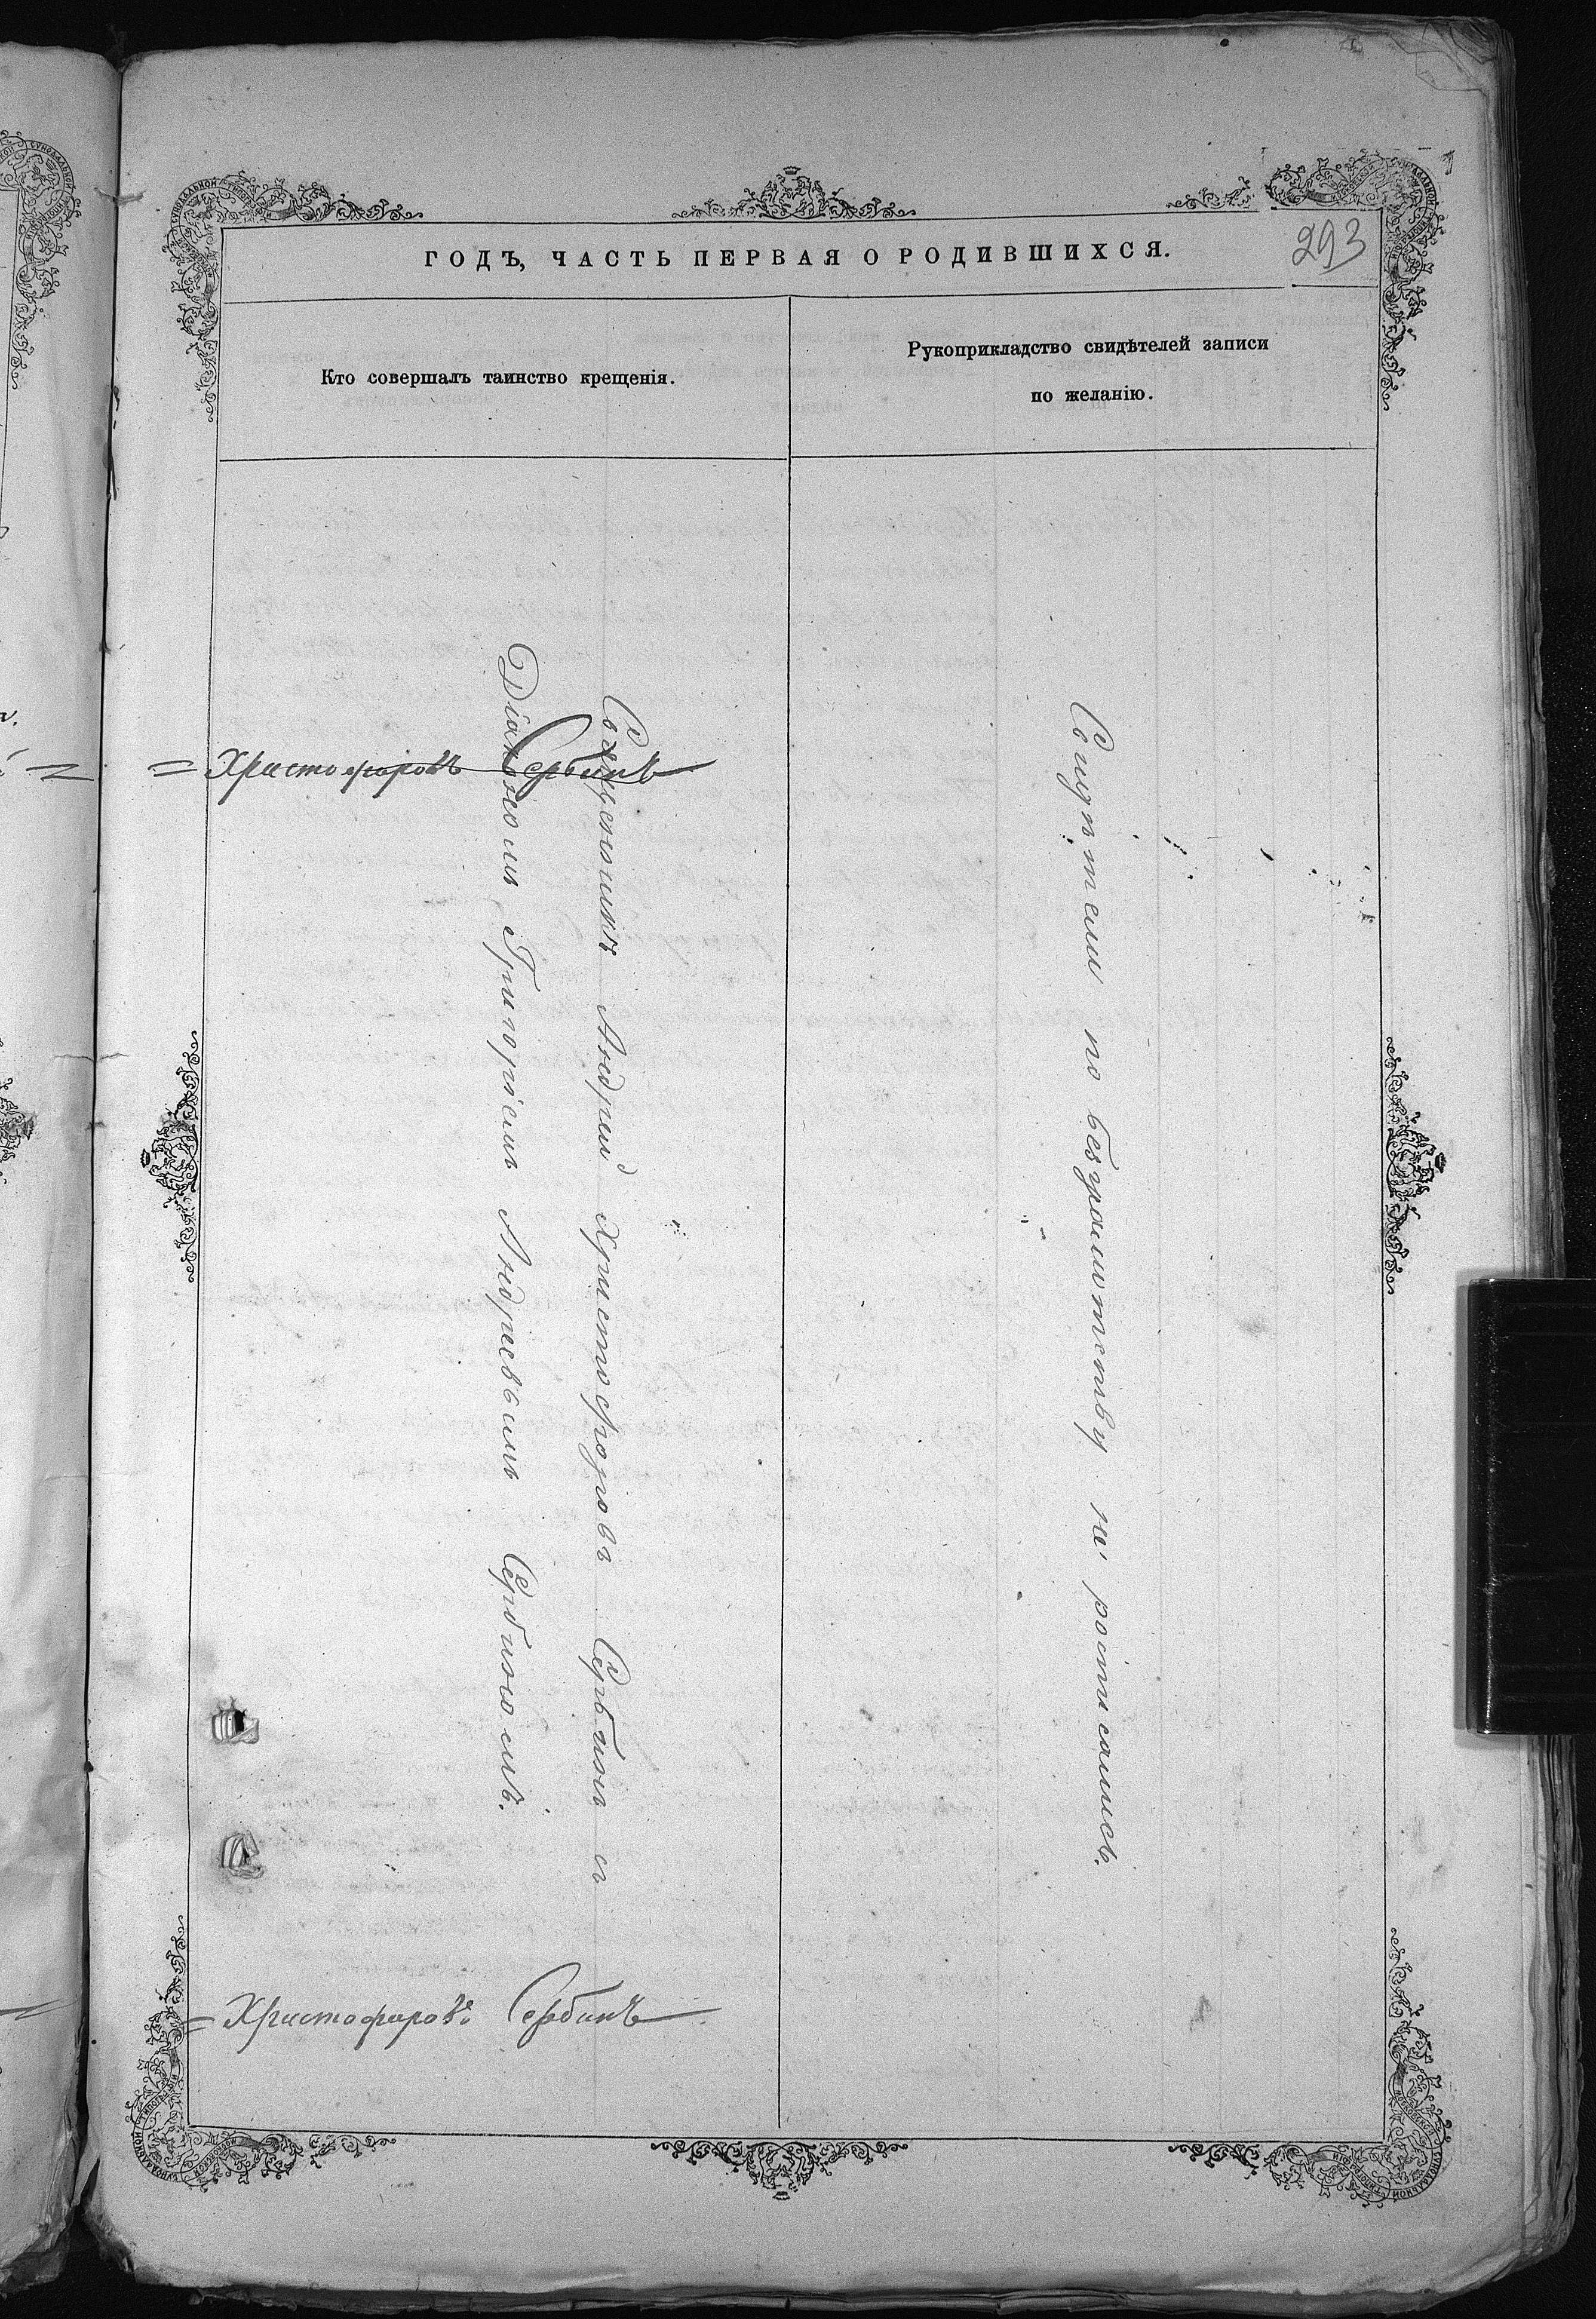 293
ГОДЪ, ЧАСТЬ ПЕРВАЯ О РОДИВШИХСЯ.
Кто совершалъ таинство крещенія.
Рукоприкладство свидѣтелей записи
по желанію.
= Христофоровъ Сербинъ
Священникъ Андрей Христофоровъ Сербинъ съ
Діакономъ Григоріемъ Андреевымъ Сербиномъ.
Свидѣтели по безграмотству не росписались.
= Христофоровъ Сербинъ